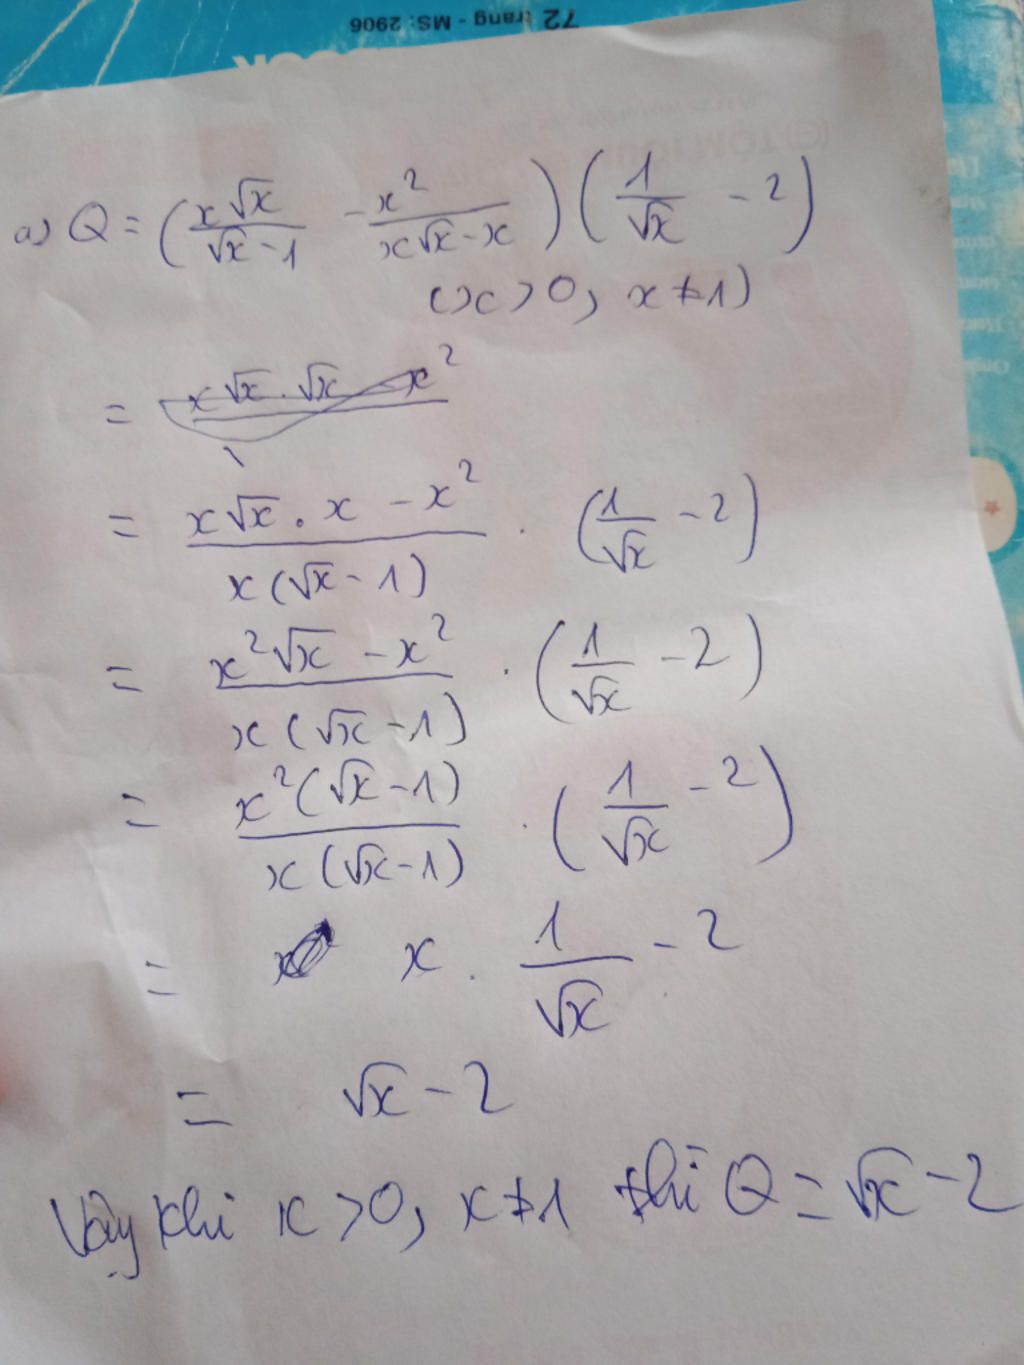 72 trang - MS: 2906
a) Q = (x√x/(√x - 1) - x²/(x√x - x)) (1/√x - 2)
(x > 0, x ≠ 1)
= x√x . √x - x²
= (x√x . x - x²)/(x(√x - 1)) . (1/√x - 2)
= (x²√x - x²)/(x(√x - 1)) . (1/√x - 2)
= (x²(√x - 1))/(x(√x - 1)) . (1/√x - 2)
= x . 1/√x - 2
= √x - 2
Vậy khi x > 0, x ≠ 1 thì Q = √x - 2